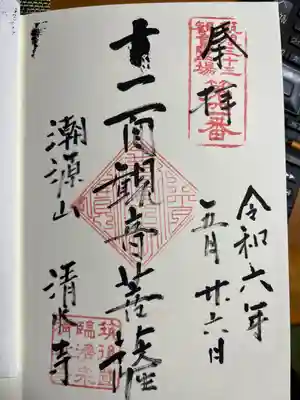 奉拝
令和六年
五月廿六日
十一面観音菩薩
潮源山
清水寺
筑後
臨済宗